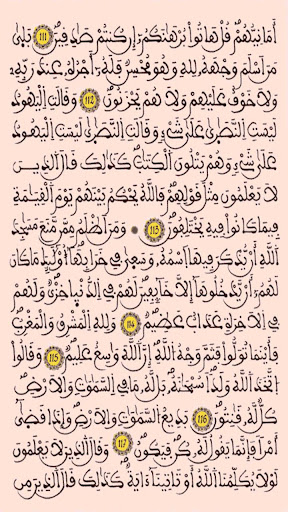 أَمَانِيُّهُمْ قُلْ هَاتُوا بُرْهَانَكُمْ إِن كُنتُمْ صَٰدِقِينَ 111 بَلَىٰ
مَنْ أَسْلَمَ وَجْهَهُ لِلهِ وَهُوَ مُحْسِنٌ فَلَهُ أَجْرُهُ عِندَ رَبِّهِ
وَلَا خَوْفٌ عَلَيْهِمْ وَلَا هُمْ يَحْزَنُونَ 112 وَقَالَتِ الْيَهُودُ
لَيْسَتِ النَّصَٰرَىٰ عَلَىٰ شَيْءٍ وَقَالَتِ النَّصَٰرَىٰ لَيْسَتِ الْيَهُودُ
عَلَىٰ شَيْءٍ وَهُمْ يَتْلُونَ الْكِتَٰبَ كَذَٰلِكَ قَالَ الَّذِينَ
لَا يَعْلَمُونَ مِثْلَ قَوْلِهِمْ فَاللَّهُ يَحْكُمُ بَيْنَهُمْ يَوْمَ الْقِيَٰمَةِ
فِيمَا كَانُوا فِيهِ يَخْتَلِفُونَ 113 وَمَنْ أَظْلَمُ مِمَّن مَّنَعَ مَسَٰجِدَ
اللَّهِ أَن يُذْكَرَ فِيهَا اسْمُهُ وَسَعَىٰ فِي خَرَابِهَا أُوْلَٰئِكَ مَا كَانَ
لَهُمْ أَن يَدْخُلُوهَا إِلَّا خَائِفِينَ لَهُمْ فِي الدُّنْيَا خِزْيٌ وَلَهُمْ
فِي الْآخِرَةِ عَذَابٌ عَظِيمٌ 114 وَلِلهِ الْمَشْرِقُ وَالْمَغْرِبُ
فَأَيْنَمَا تُوَلُّوا فَثَمَّ وَجْهُ اللَّهِ إِنَّ اللَّهَ وَاسِعٌ عَلِيمٌ 115 وَقَالُوا
اتَّخَذَ اللَّهُ وَلَدًا سُبْحَٰنَهُ بَل لَّهُ مَا فِي السَّمَٰوَٰتِ وَالْأَرْضِ
كُلٌّ لَّهُ قَٰنِتُونَ 116 بَدِيعُ السَّمَٰوَٰتِ وَالْأَرْضِ وَإِذَا قَضَىٰ
أَمْرًا فَإِنَّمَا يَقُولُ لَهُ كُن فَيَكُونُ 117 وَقَالَ الَّذِينَ لَا يَعْلَمُونَ
لَوْلَا يُكَلِّمُنَا اللَّهُ أَوْ تَأْتِينَا ءَايَةٌ كَذَٰلِكَ قَالَ الَّذِينَ مِن